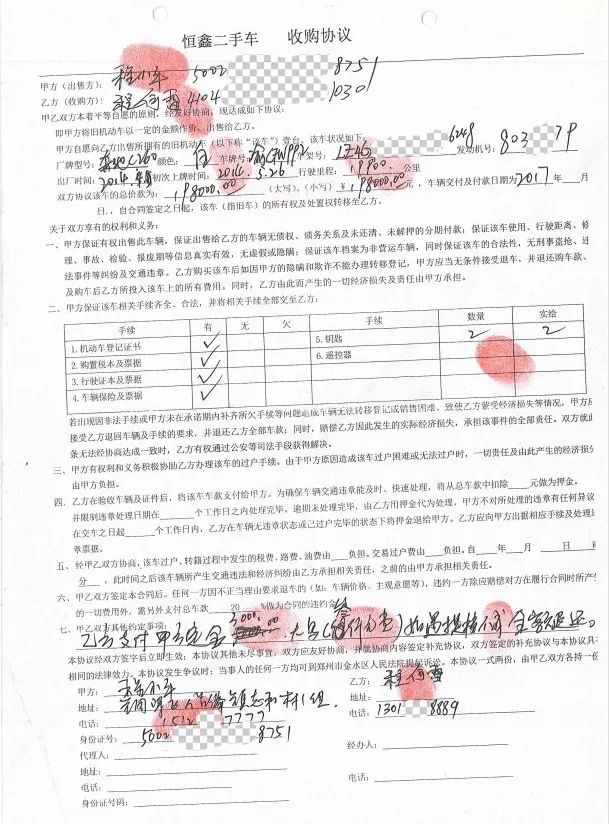 恒鑫二手车 收购协议
甲方（出售方）：程小车 5002 8751
乙方（收购方）：程何雷 4104 1030
甲乙双方本着平等自愿的原则，经友好协商，现达成如下协议：
即甲方将旧机动车以一定的金额作价，出售给乙方。
甲方自愿向乙方出售所拥有的旧机动车（以下称“该车”）壹台。该车状况如下：
厂牌型号： C260 颜色：白 车牌号： 车架号：LE4G 6248 发动机号：803 79
出厂时间：2016. 初次上牌时间：2016.5.26 行驶里程：19900 公里
双方协议该车的总价款为：198000.00（大写），（小写）￥198000.00元，车辆交付及付款日期为2017年 月
日。自合同签定之日起，该车（指旧车）的所有权及处置权转移至乙方。
关于双方享有的权利和义务：
一、甲方保证有权出售此车辆。保证出售给乙方的车辆无债权、债务关系及未还清、未解押的分期付款；保证该车使用、行驶距离、修
理、事故、检验、报废期等信息真实有效，无虚假或隐瞒；保证该车档案为非营运车辆，同时保证该车的合法性，无刑事盗抢、进
法事件等纠纷及交通违章。乙方购买该车后如因甲方的隐瞒和欺诈不能办理转移登记，甲方应当无条件接受退车，并退还购车款、
及购车后乙方所投入该车上的所有费用。同时，乙方有由此而产生的一切经济损失及责任由甲方承担。
二、甲方保证该车相关手续齐全、合法，并将相关手续全部交至乙方：
手续 有 无 欠 手续 数量 实给
1.机动车登记证书 ✓ 5.钥匙 2 2
2.购置税本及票据 ✓ 6.遥控器
3.行驶证本及票据 ✓
4.车辆保险及票据 ✓
若出现因非法手续或甲方未在承诺期内补齐所欠手续等问题造成车辆无法转移登记或销售困难、致使乙方蒙受经济损失等情况，甲方应
接受乙方退回车辆及手续的要求，并退还乙方全部车款；同时，赔偿乙方因此发生的实际经济损失，承担该事件的全部责任。双方就此
条无法经协商达成一致时，乙方有权通过公安等司法手段获得解决。
三、甲方有权利和义务积极协助乙方办理该车的过户手续。由于甲方原因造成该车过户困难或无法过户时，一切责任及由此产生的经济损失
由甲方负担。
四、乙方在验收车辆及证件后，将该车车款支付给甲方。为确保车辆交通违章能及时、快速处理，将从总车款中扣除____元做为押金。
并限制违章处理日期在____个工作日之内处理完毕。逾期未处理完毕，由乙方用押金代为处理，甲方不对所处理的违章有任何异议
在交车之日起____个工作日内，乙方在车辆无违章状态或已过户完毕的状态下将押金退给甲方。乙方应向甲方出据相应手续及处理违
章票据。
五、经甲乙双方协商，该车过户、转籍过程中发生的税费、路费、油费由____负担。交易过户费由____负担。自____年____月____日 时
分____，此时间之后该车辆所产生交通违法和经济纠纷由乙方承担相关责任，之前的由甲方承担相关责任。
六、甲乙双方签定本合同后。任何一方因不正当理由要求退车的（如：车辆价格、主观意愿等），违约一方除应赔偿对方在履行合同时所产生
的一切费用外，需另外支付总车款 20 %做为合同的违约金。
七、甲乙双方其他约定事项：
乙方支付甲方定金 3000.00 大写（叁仟元整）如果提档不成 全额退还。
本协议经双方签字后立即生效；本协议其他未尽事宜，双方应友好协商，并就协商内容签定补充协议，双方签定的补充协议与本协议具
相同的法律效力。本协议发生争议时；当事人的任何一方均可到郑州市金水区人民法院提起诉讼。本协议一式两份，由甲乙双方各持一份
甲方：程小车 乙方：程何雷
地址： 村1组. 地址：
电话：1512 7777 电话：1301 8889
身份证号：5002 8751
代理人： 经办人：
地址：
电话： 电话：
身份证号码：